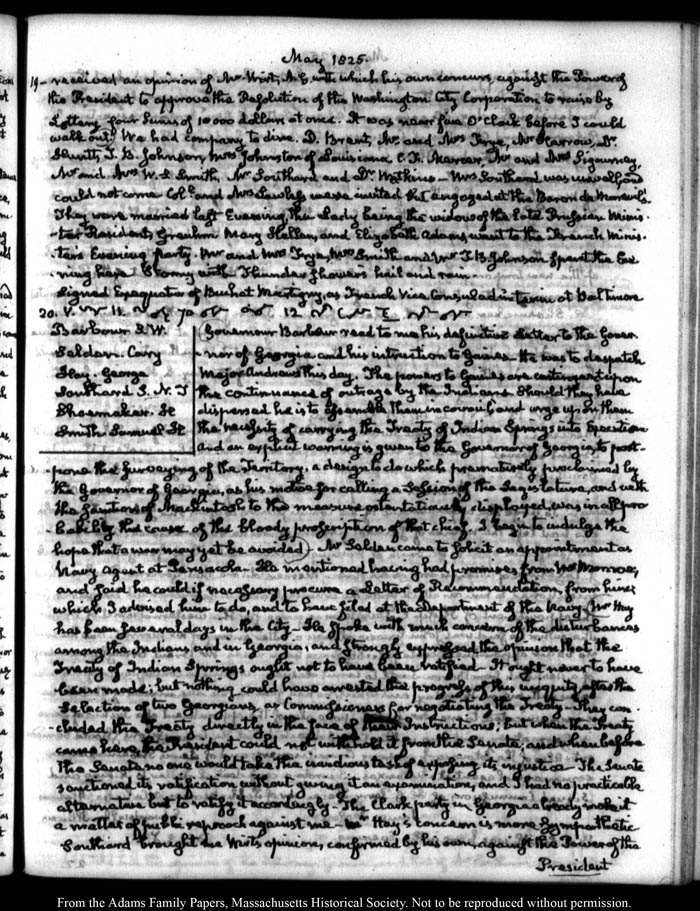 May 1825.
19- received an opinion of Mr Wirt, A. G. with which his own concurs, against the Power of
the President to approve the Resolution of the Washington City Corporation to raise by
Lottery, four Sums of 10000 dollars at once. It was near five O'Clock before I could
walk out. We had company to dine. D. Brent, Mr and Mrs Frye, Mr Harrow, Dr
Huntt, J. B. Johnson, Mrs Johnston of Louisiana, C. F. Mercer, Mr and Mrs Sigourney,
Mr and Mrs W. S. Smith, Mr Southard and Dr Watkins- Mrs Southard was unwell, and
could not come Col. and Mrs Lawless were invited but engaged at the Baron de Mareuil's.
They were married last Evening, the Lady being the widow of the late Prussian Minis-
-ter Resident, Greuhm Mary Hellen, and Elizabeth Adams went to the French Minis-
-ter's Evening party. Mr and Mrs Frye, Mrs Smith and Mr J. B. Johnson spent the Eve-
ning here Stormy with Thunder showers hail and rain-
Signed Exequatur of Buchet Martigny, as French Vice Consul ad interim at Baltimore
20. V.
Barbour. J. W.
Selden. Cary
Hay. George
Southard S. N. J
Shoemaker. St
Smith Samuel St
Governour Barbour read to me his definitive Letter to the Gover-
nor of Georgia and his instruction to Gaines- He was to despatch
Major Andrews this day. The powers to Gaines are contingent upon
the continuance of outrage by the Indians. Should they have
dispersed he is to assemble them in council and urge upon them
the necessity of carrying the Treaty of Indian Springs into Execution
and an explicit warning is given to the Governor of Georgia to post-
pone the Surveying of the Territory, a design to do which prematurely proclaimed by
the Governor of Georgia, as his motive for calling a Session of the Legislature, and with
the sanction of Mackintosh to the measure ostentatiously displayed, was in all pro-
-bability the cause of the bloody proscription of that chief. I begin to indulge the
hope that a war may yet be avoided)- Mr Selden came to solicit an appointment as
Navy Agent at Pensacola- He mentioned having had promises from Mr Monroe,
and said he could if necessary procure a Letter of Recommendation, from him;
which I advised him to do, and to have filed at the Department of the Navy. Mr Hay
has been several days in the City- He spoke with much concern of the disturbances
among the Indians and in Georgia; and strongly expressed the opinion that the
Treaty of Indian Springs ought not to have been ratified- It ought never to have
been made; but nothing could have arrested the progress of this iniquity after the
Selection of two Georgians, as Commissioners for negotiating the Treaty- They con-
-cluded this Treaty directly in the face of their Instructions; but when the Treaty
came here, the President could not withhold it from the Senate; and when before
the Senate no one would take the invidious task of exposing its injustice- The Senate
sanctioned its ratification without giving it an examination, and I had no practicable
alternative but to ratify it accordingly- The Clark party in Georgia already make it
a matter of public reproach against me- Mr Hay's concern is more sympathetic
Southard brought me Wirt's opinion, confirmed by his own, against the Power of the
President
From the Adams Family Papers, Massachusetts Historical Society. Not to be reproduced without permission.